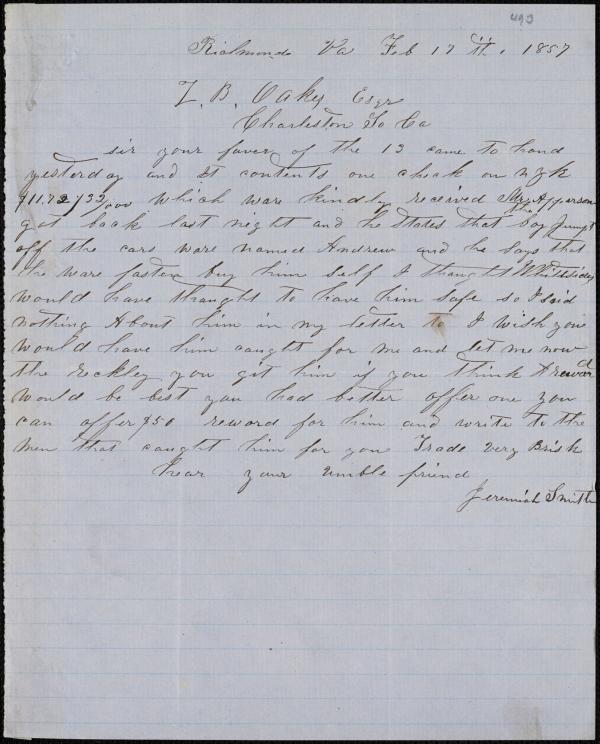 493
Richmond Va Feb 17th, 1857
Z. B. Oakes Esqr
Charleston So Ca
sir your favor of the 13 came to hand
yesterday and it contents one check on N Yk
$1172 33/100 which ware kindly received Mr Apperson
got back last night and he states that the boy Jumpt
off the cars ware named Andrew and he says that
he ware fasten buy him self I thought
would have thought to have him safe so I said
nothing About him in my letter to I wish you
would have him caught for me and let me now
the reckley you got him if you think A reward
would be best you had better offer one you
can offer $50 reward for him and write to the
men that caught him for you Trade very Brisk
hear your umble friend
Jeremiah Smith